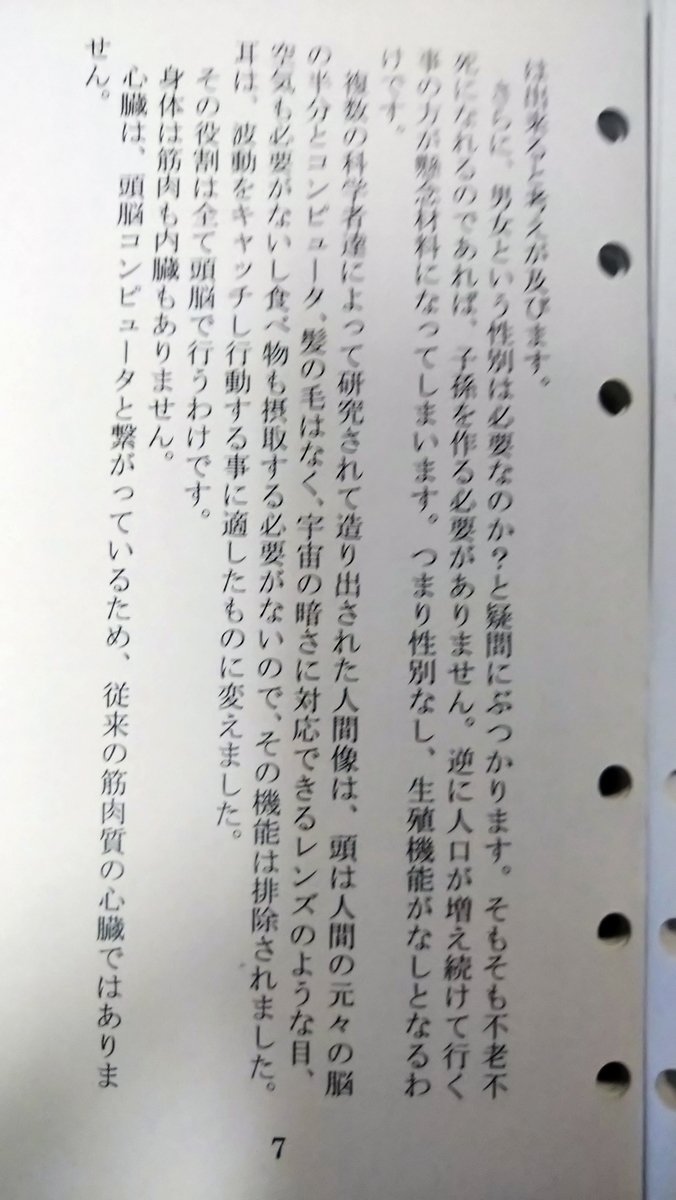 は出来ると考えが及びます。
さらに、男女という性別は必要なのか?と疑問にぶつかります。そもそも不老不
死になれるのであれば、子孫を作る必要がありません。逆に人口が増え続けて行く
事の方が懸念材料になってしまいます。つまり性別なし、生殖機能がなしとなるわ
けです。
複数の科学者達によって研究されて造り出された人間像は、頭は人間の元々の脳
の半分とコンピュータ、髪の毛はなく、宇宙の暗さに対応できるレンズのような目、
空気も必要がないし食べ物も摂取する必要がないので、その機能は排除されました。
耳は、波動をキャッチし行動する事に適したものに変えました。
その役割は全て頭脳で行うわけです。
身体は筋肉も内臓もありません。
心臓は、頭脳コンピュータと繋がっているため、従来の筋肉質の心臓ではありま
せん。
7